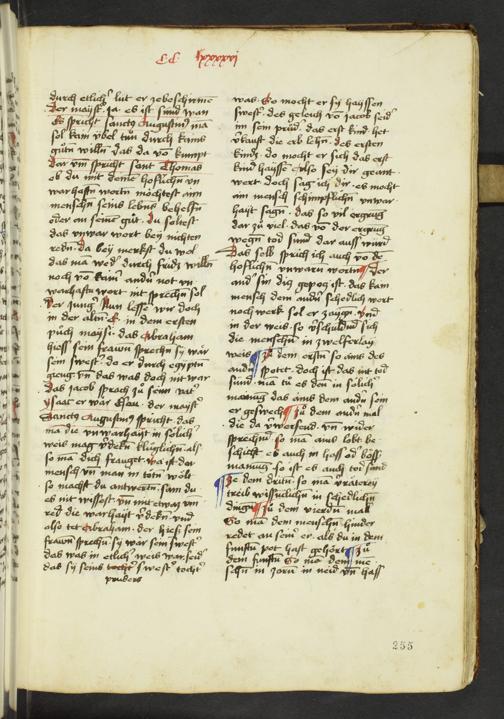 CC lxxxxvi
durch etlich lut er zebeschirme
Der mayst ja es ist sund wan
Es spricht sanct9 Augustin9 ma
sol kain vbel tun durch kains
guten willn das da vo kumpt
dar vm spricht sant Thomas
ob du mit deine hoflichn vn
warhaftn wortn möchtest ain
menschn seins lebns behelffn
oder an seine gut du soltest
das vnwar wort bey nichten
redn da bey merkst du wol
das ma wed durch frids willn
noch vo kain andn not vn
warhafftn wort nit sprechn sol
Der jung Nun lesse wir doch
in der altn e in dem ersten
puch moysi das Abraham
hiess sein frawn sprechn sy wär
sein swest do er durch egyptn
gieng vn das was doch nit war
Das jacob sprach zu seine vat
ysaac er wär Esau der mayst
Sanctus Augustin9 spricht das
ma die vnwarhayt in solich
weis mag vdekn klüglichn als
so ma dich fraget wa ist der
mensch vn man in totn wölt
so machst du antwortn sam du
es nit wissest vn mit etwas vm
red die warhayt vdekn vnd
also tet Abraham der hiess sein
frawn sprechn sy wär sein swest
das was in etlich weis war seid
das sy seins tocht swest tocht
pruders
was So mocht er sy hayssen
swest des geleich do jacob seid
im sein prud das erst kind het
vkauft die erb lehn des ersten
kindz do mocht er sich das erst
kind haysse Also sey dir geant
wert doch sag ich dir es mocht
ain mensch schimpflichn vnwar
hayt sagn das so vil ergrug
dar zu viel das vo der ergrug
wegn tod sund dar auss wurd
Das selb sprich ich auch vo de
hoflichn vnwarn wortn Der
and sin dig gepog ist das kain
mensch dem andn schedlich wort
noch werk sol er zaygn Vnd
in der weis so vschuldnd sich
die menschn in zwelferlay
weis Ze dem erstn so ains des
andn spotet doch ist das nit tod
sund ma tu es den in solich
maynug das ains dem andn sein
er geswech Zu dem andn mal
die da vwersend vn wider
sprechn so ma ains lobt be
schicht es auch in hass od böss
maynug so ist es auch tod sund
Ze dem dritn so ma vräterey
treib wissnclichn in schedlichn
dingn Zu dem vierdn mal
So ma dem menschn hinder
redet an sein er als du in dem
funftn pot hast gehört Zu
dem funftn So ma dem me
schn in zorn in neid vn hass
255